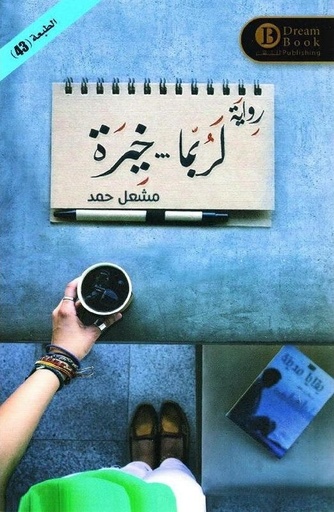 الطبعة (43)
Dream
Book
Publishing
رواية
لَرُبّما... خِيَرَة
مشعل حمد